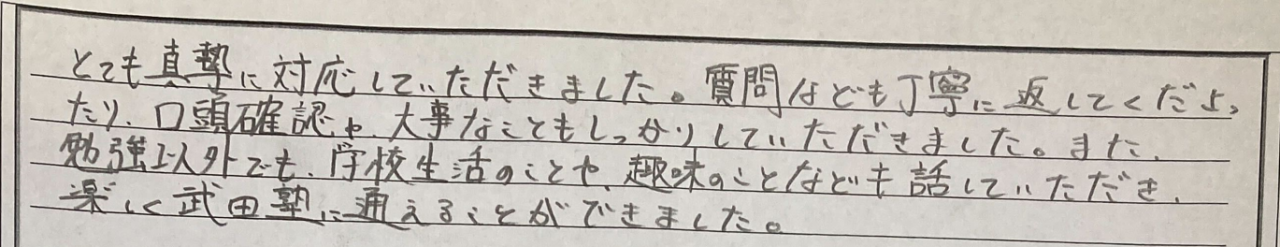 とても真摯に対応していただきました。質問なども丁寧に返してくださっ
たり、口頭確認や、大事なこともしっかりしていただきました。また、
勉強以外でも、学校生活のことや、趣味のことなども話していただき、
楽しく武田塾に通えることができました。